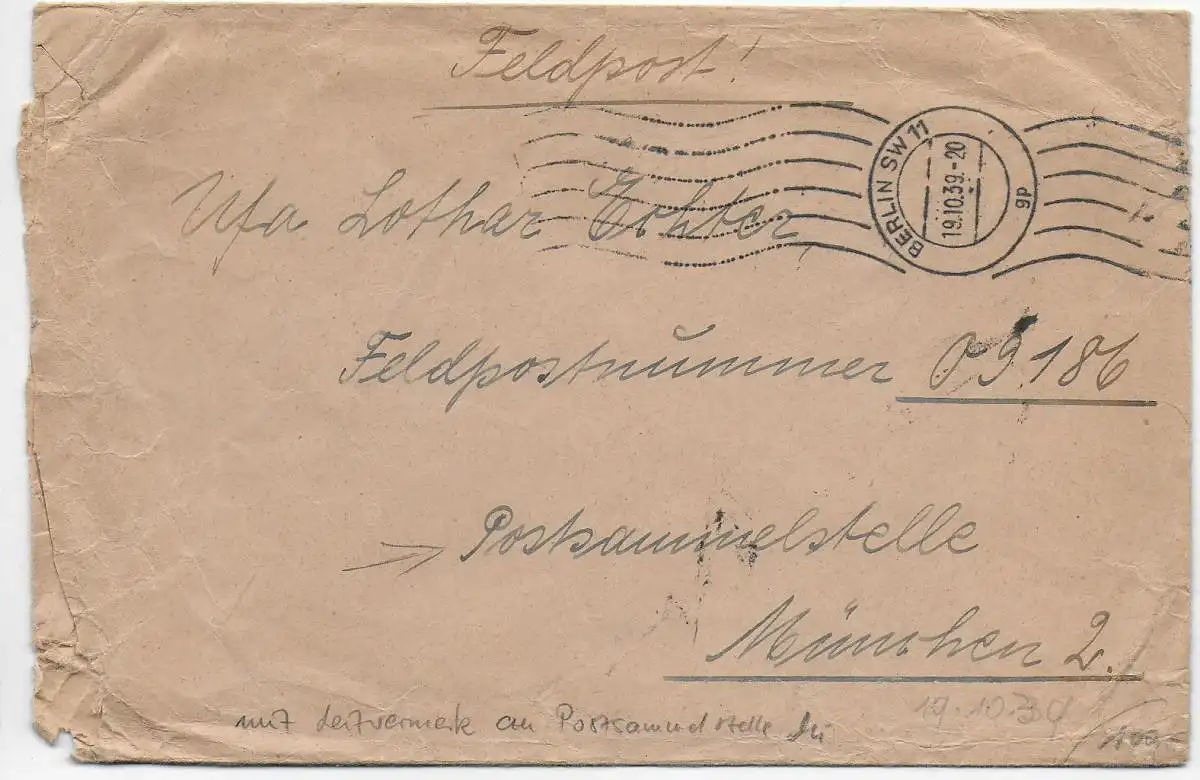 Feldpost!
BERLIN SW 11
19.10.39.-20
gp
Ufa Lothar Echter
Feldpostnummer 09186
Postsammelstelle
München 2.
19.10.39
mit Leitvermerk an Postsammelstelle